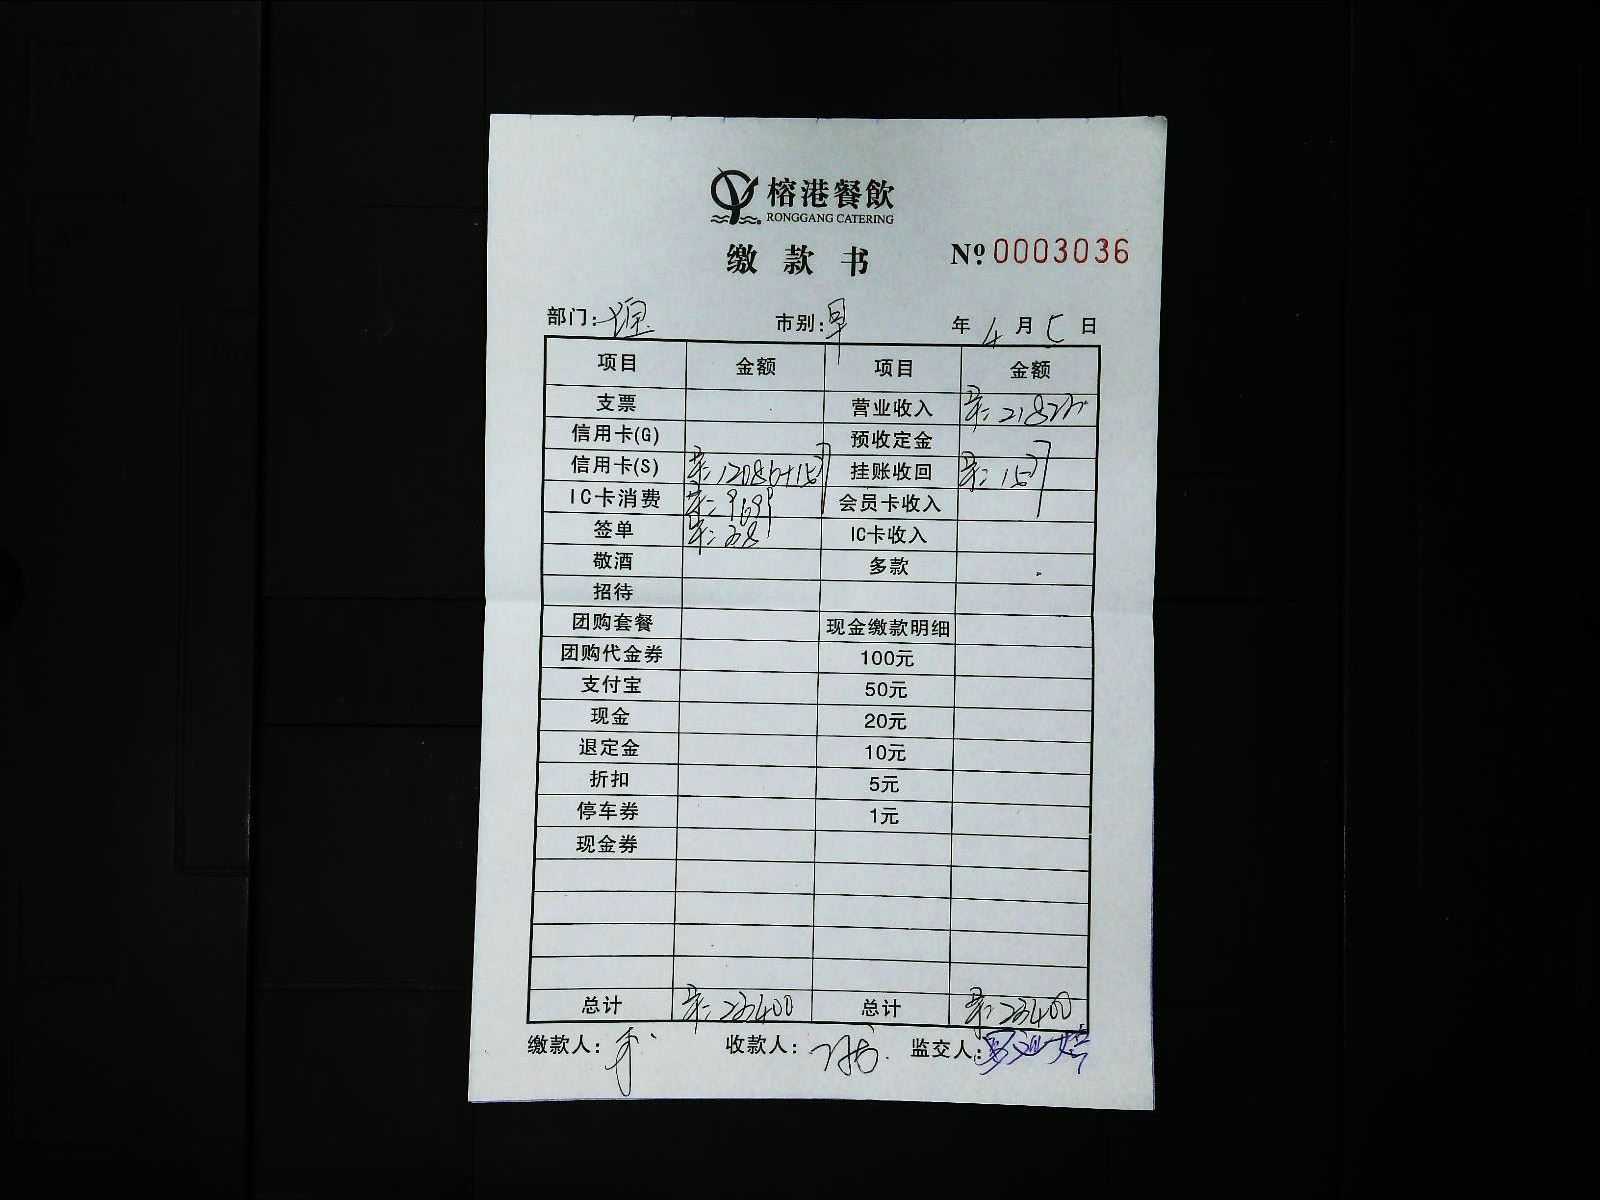 榕港餐飲
RONGGANG CATERING
缴款书 Nº 0003036
部门: 市别:早 年 4 月 5 日
项目 金额 项目 金额
支票 营业收入
信用卡(G) 预收定金
信用卡(S) 挂账收回
IC卡消费 会员卡收入
签单 IC卡收入
敬酒 多款
招待
团购套餐 现金缴款明细
团购代金券 100元
支付宝 50元
现金 20元
退定金 10元
折扣 5元
停车券 1元
现金券
总计 23400 总计 23400
缴款人: 收款人: 监交人: